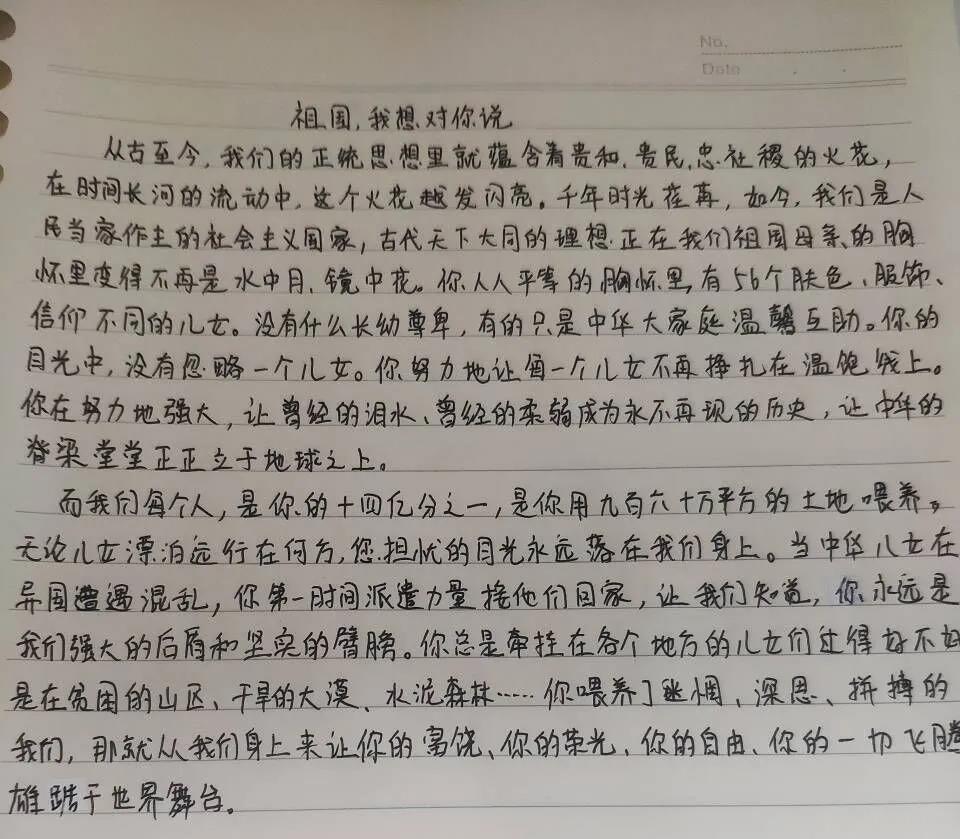 No.
Date
祖国,我想对你说
从古至今,我们的正统思想里就蕴含着贵和、贵民、忠社稷的火花,
在时间长河的流动中,这个火花越发闪亮。千年时光荏苒,如今,我们是人
民当家作主的社会主义国家,古代天下大同的理想正在我们祖国母亲的胸
怀里变得不再是水中月、镜中花。你人人平等的胸怀里,有56个肤色、服饰、
信仰不同的儿女。没有什么长幼尊卑,有的只是中华大家庭温馨互助。你的
目光中,没有忽略一个儿女。你努力地让每一个儿女不再挣扎在温饱线上。
你在努力地强大,让曾经的泪水、曾经的柔弱成为永不再现的历史,让中华的
脊梁堂堂正正立于地球之上。
而我们每个人,是你的十四亿分之一,是你用九百六十万平方的土地喂养。
无论儿女漂泊远行在何方,您担忧的目光永远落在我们身上。当中华儿女在
异国遭遇混乱,你第一时间派遣力量接他们回家,让我们知道,你永远是
我们强大的后盾和坚实的臂膀。你总是牵挂在各个地方的儿女们过得好不好
是在贫困的山区、干旱的大漠、水泥森林……你喂养了迷惘、深思、拼搏的
我们,那就从我们身上来让你的富饶、你的荣光、你的自由、你的一切飞腾
雄踞于世界舞台。